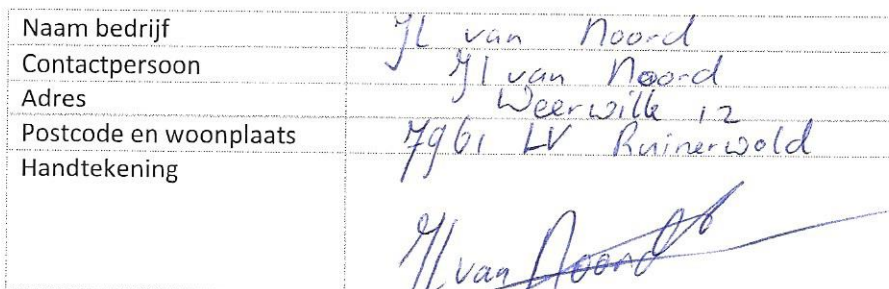 Naam bedrijf JL van Noord
Contactpersoon Jl van Noord
Adres Weerwille 12
Postcode en woonplaats 7961 LV Ruinerwold
Handtekening Jl van Noord